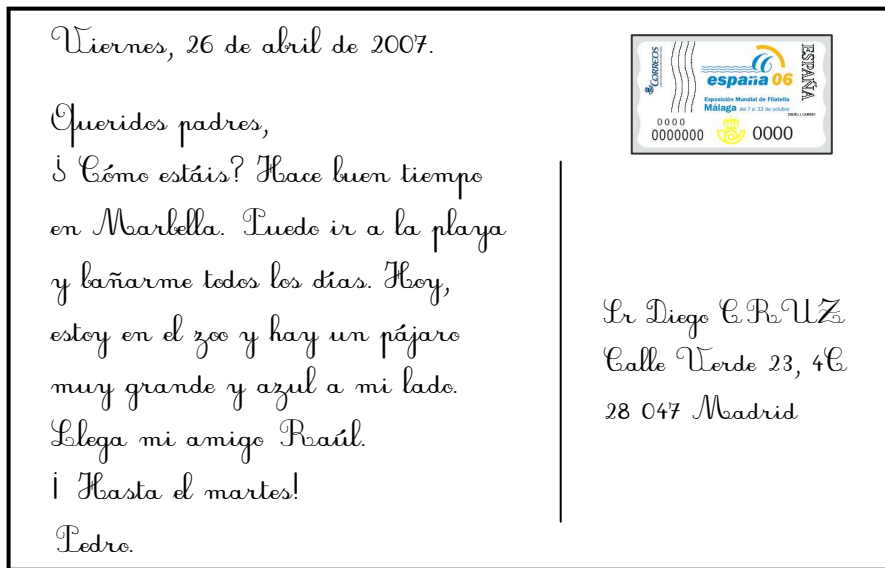 Viernes, 26 de abril de 2007.
Queridos padres,
¿ Cómo estáis? Hace buen tiempo
en Marbella. Puedo ir a la playa
y bañarme todos los días. Hoy,
estoy en el zoo y hay un pájaro
muy grande y azul a mi lado.
Llega mi amigo Raúl.
¡ Hasta el martes!
Pedro.
CORREOS
españa 06
ESPAÑA
Exposición Mundial de Filatelia
Málaga
0000
0000000
0000
Sr Diego CRUZ
Calle Verde 23, 4C
28 047 Madrid